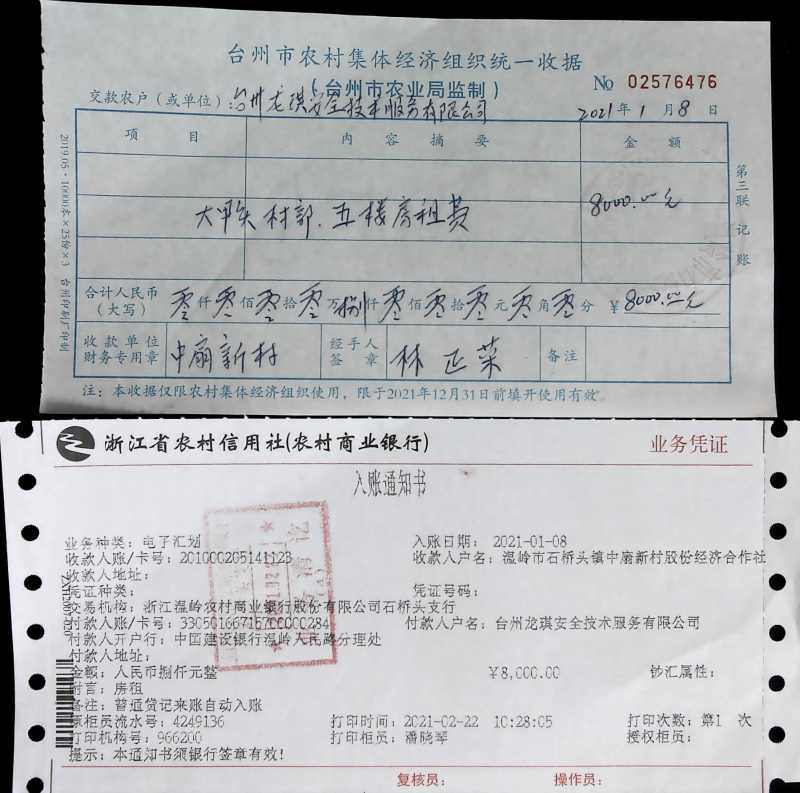 台州市农村集体经济组织统一收据
(台州市农业局监制)
No 02576476
交款农户(或单位):台州龙琪安全技术服务有限公司
2021年1月8日
项目 内容摘要 金额
大甲头村部.五楼房租费 8000.00元
合计人民币(大写) 零仟零佰零拾零万捌仟零佰零拾零元零角零分 ¥8000.00元
收款单位财务专用章 中扇新村 经手人签章 林正菜 备注
注:本收据仅限农村集体经济组织使用,限于2021年12月31日前填开使用有效。
第三联 记账
2019.05·10000本×25份×3 台州印刷厂印制
浙江省农村信用社(农村商业银行) 业务凭证
入账通知书
业务种类:电子汇划 入账日期:2021-01-08
收款人账/卡号:201000205141123 收款人户名:温岭市石桥头镇中扇新村股份经济合作社
收款人地址:
凭证种类: 凭证号码:
交易机构:浙江温岭农村商业银行股份有限公司石桥头支行
付款人账/卡号:33050166715700000284 付款人户名:台州龙琪安全技术服务有限公司
付款人开户行:中国建设银行温岭人民路分理处
付款人地址:
金额:人民币捌仟元整 ¥8,000.00 钞汇属性:
附言:房租
备注:普通贷记来账自动入账
原柜员流水号:4249136 打印时间:2021-02-22 10:28:05 打印次数:第1 次
打印机构号:966200 打印柜员:潘晓琴 授权柜员:
提示:本通知书须银行签章有效!
复核员: 操作员: